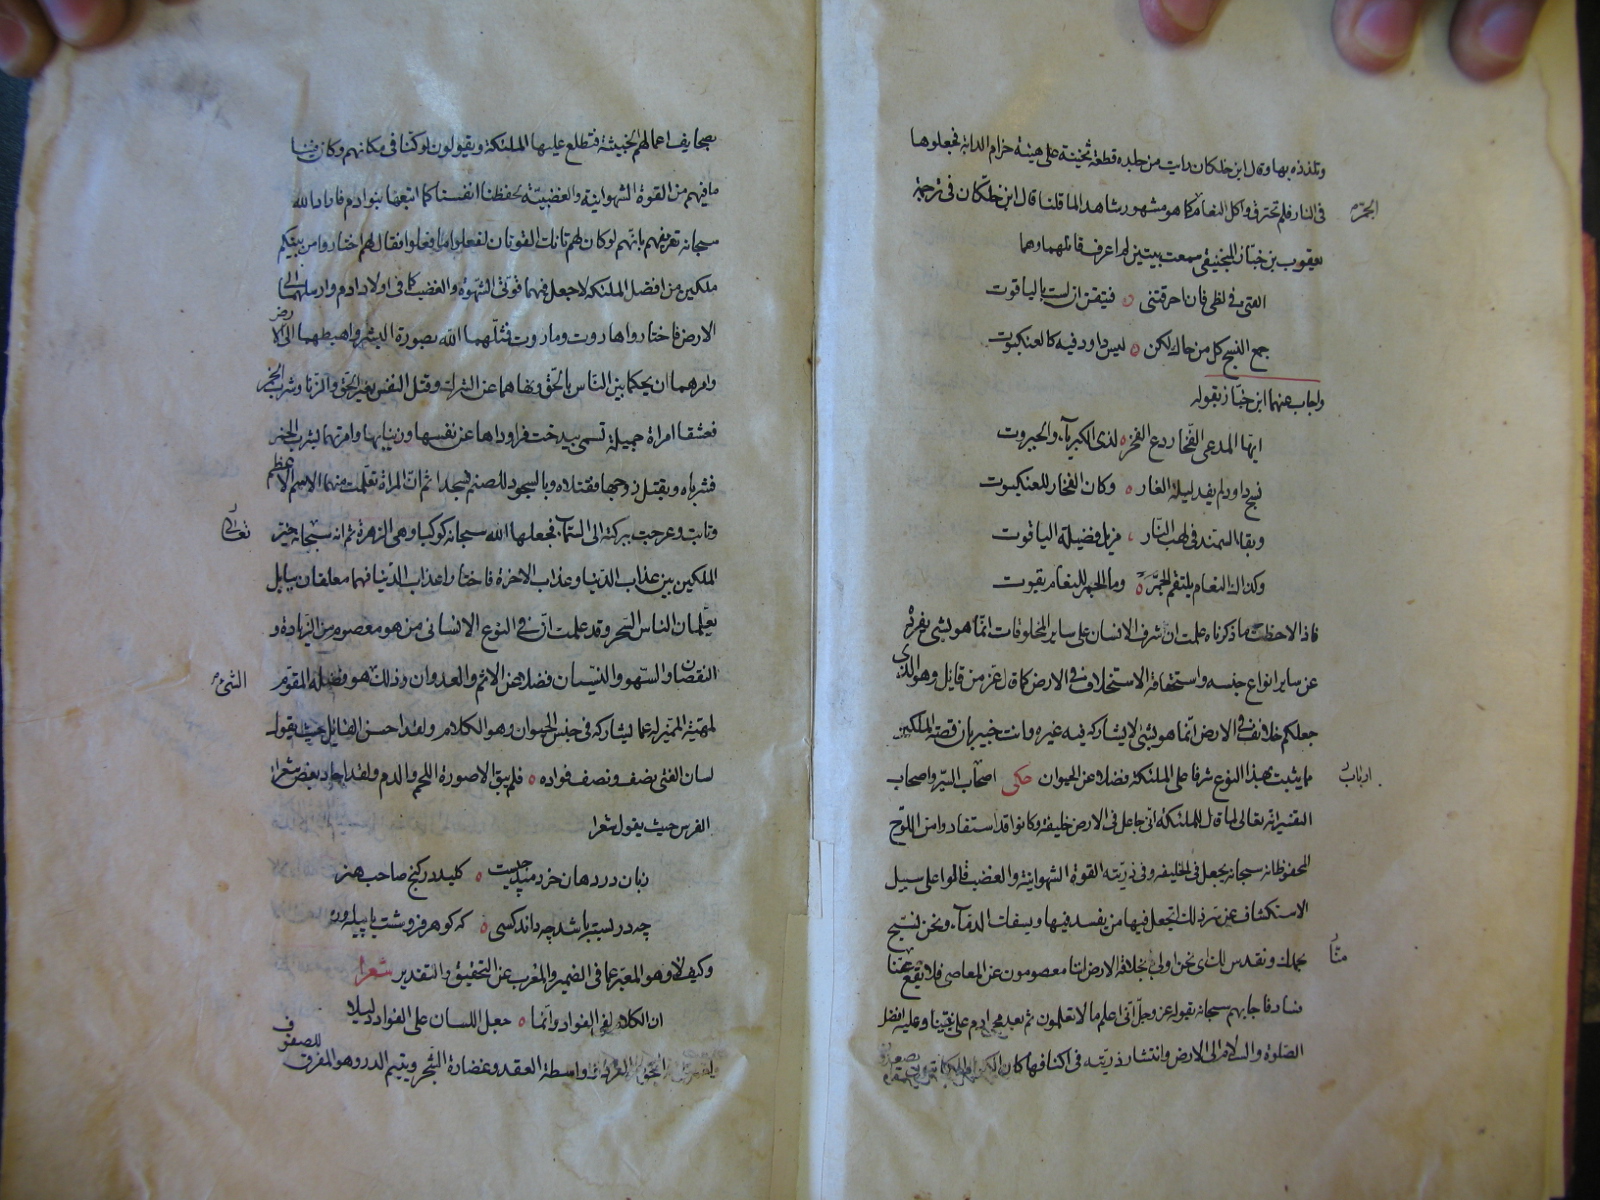 وتلذذه بها وقال ابن خلكان رايت من جلده قطعة ثخينة على هيئة حزام الدابة فجعلوها
في النار فلم تحترق واكل النعام كما هو مشهور شاهد لما قلنا قال ابن خلكان في ترجمة
الجمر
يعقوب بن خباز المجنيقي سمعت بيتين لم اعرف قائلهما وهما
القني في لظى فان احرقتني فتيقن ان لست بالياقوت
جمع النسج كل من حاك لكن ليس داود فيه كالعنكبوت
واجاب عنهما ابن خباز بقوله
ايها المدعي الفخار دع الفخر لذي الكبرياء والجبروت
نسج داود لم يفد ليلة الغار وكان الفخار للعنكبوت
وبقاء السمند في لهب النار مزيل فضيلة الياقوت
وكذاك النعام يلتقم الجمر وما الجمر للنعام بقوت
فاذا لاحظت ما ذكرناه علمت ان شرف الانسان على ساير المخلوقات انما هو بشئ يفرده
عن ساير انواع جنسه واستحقاقه الاستخلاف في الارض كما قال عز من قايل وهو الذي
جعلكم خلائف في الارض انما هو بشئ لا يشاركه فيه غيره وانت خبير بان قصة الملكين
مما يثبت بهذا النوع شرفا على الملئكة فضلا عن الحيوان حكى اصحاب السير واصحاب
ارباب
التفسير انه تعالى لما قال للملئكة اني جاعل في الارض خليفة وكانوا قد استفادوا من اللوح
المحفوظ انه سبحانه يجعل في الخليفة وفي ذريته القوة الشهوانية والغضب قالوا على سبيل
الاستكشاف عن سر ذلك اتجعل فيها من يفسد فيها ويسفك الدماء ونحن نسبح
بحمدك ونقدس لك اي نحن اولى بخلافة الارض لننا معصومون عن المعاصي فلا يقع عنا
منا
فساد فاجابهم سبحانه بقوله عز وجل اني اعلم ما لا تعلمون ثم بعد مجئ ادم على نبينا وعليه افضل
الصلوة والسلام الى الارض وانتشار ذريته في اكنافها كان
بصحايف اعمالهم الخبيثة فتطلع عليها الملئكة ويقولون لو كنا في مكانهم وكان فينا
ما فيهم من القوة الشهوانية والغضبية لحفظنا انفسنا كما اتبعها بنو ادم فاراد الله
سبحانه تعريفهم بانهم لو كان لهم تانك القوتان لفعلوا ما فعلوا فقال لهم اختاروا من بينكم
ملكين من افضل الملئكة لاجعل فيهما قوتي الشهوة والغضب كما في اولاد ادم وارسلهما الى
الارض فاختاروا هاروت وماروت فمثلهما الله بصورة البشر واهبطهما الى الارض
وامرهما ان يحكما بين الناس بالحق ونهاهما عن الشرك وقتل النفس بغير الحق والزنا وشرب الخمر
فعشقا امراة جميلة تسمى بيدخت فراوداها عن نفسها وزنيا بها وامرتهما بشرب الخمر
فشرباه وبقتل زوجها فقتلاه وبالسجود للصنم فسجدا ثم ان المراة تعلمت منهما الاسم الاعظم
وتابت وعرجت ببركته الى السماء فجعلها الله سبحانه كوكبا وهي الزهرة ثم انه سبحانه خير
تعالى
الملكين بين عذاب الدنيا وعذاب الاخرة فاختارا عذاب الدنيا فهما معلقان ببابل
يعلمان الناس السحر وقد علمت ان في النوع الانساني من هو معصوم من الزيادة و
النقصان والسهو والنسيان فضلا عن الاثم والعدوان وذلك هو فضله المقوم
الشئ
لمهيته المميز له عما يشاركه في جنس الحيوان وهو الكلام ولقد احسن القايل حيث يقول
لسان الفتى نصف ونصف فواده فلم يبق الا صورة اللحم والدم ولقد اجاد بعض شعرا
الفرس حيث يقول شعرا
زبان در دهان خردمند چيست كليد در كنج صاحب هنر
چه در بسته باشد چه داند كسى كه كوهر فروشست يا پيله ور
وكيف لا وهو المعبر عما في الضمير والمعرب عن التحقيق والتقدير شعرا
ان الكلام لفي الفواد وانما جعل اللسان على الفواد دليلا
واسطة العقد وغضارة الشجر ويتيم الدرر وهو المفرق
للصفوف